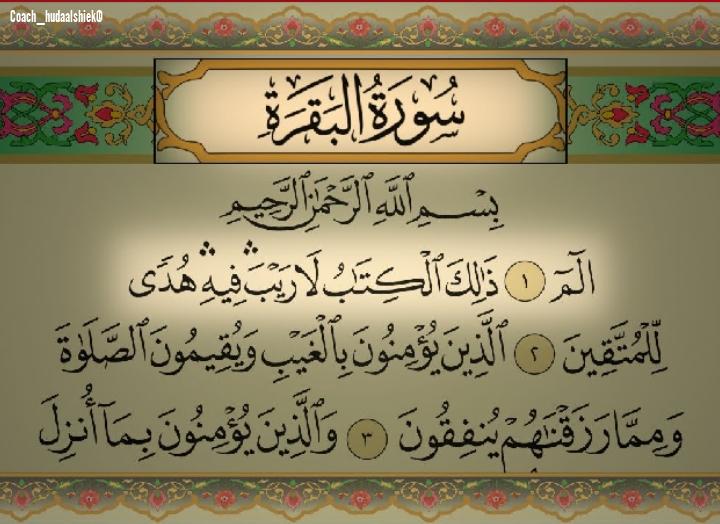 Coach_hudaalshiek©
سُورَةُ البَقَرَةِ
بِسْمِ ٱللَّهِ ٱلرَّحْمَٰنِ ٱلرَّحِيمِ
الٓمٓ ١ ذَٰلِكَ ٱلْكِتَٰبُ لَا رَيْبَ ۛ فِيهِ ۛ هُدًى
لِّلْمُتَّقِينَ ٢ ٱلَّذِينَ يُؤْمِنُونَ بِٱلْغَيْبِ وَيُقِيمُونَ ٱلصَّلَوٰةَ
وَمِمَّا رَزَقْنَٰهُمْ يُنفِقُونَ ٣ وَٱلَّذِينَ يُؤْمِنُونَ بِمَآ أُنزِلَ